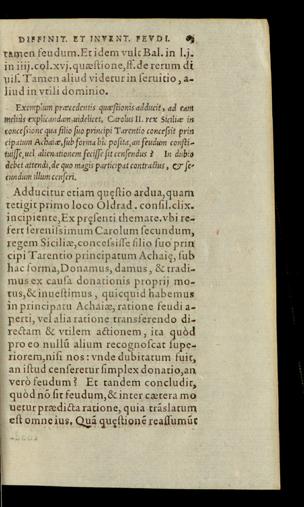 DIFFINIT. ET INVENT. FEVDI.
tamen feudum. Et idem vult Bal. in l.j.
in iiij. col. xvj. quæstione, ff. de rerum di
uis. Tamen aliud videtur in seruitio, a-
liud in vtili dominio.
Exemplum præcedentis quæstionis adducit, ad eam
melius explicandam: videlicet, Carolus II. rex Siciliæ in
concessione qua filio suo principi Tarentio concessit prin
cipatum Achaiæ, sub forma hîc posita, an feudum consti-
tuisse, vel alienationem fecisse sit censendus? In dubio
debet attendi, de quo magis participat contractus, & se-
cundum illum censeri.
Adducitur etiam quęstio ardua, quam
tetigit primo loco Oldrad. consil. clix.
incipiente, Ex pręsenti themate. vbi re-
fert serenissimum Carolum secundum,
regem Siciliæ, concessisse filio suo prin
cipi Tarentio principatum Achaię, sub
hac forma, Donamus, damus, & tradi-
mus ex causa donationis proprij mo-
tus, & inuestimus, quicquid habemus
in principatu Achaiæ, ratione feudi a-
perti, vel alia ratione transferendo di-
rectam & vtilem actionem, ita quòd
pro eo nullū alium recognoscat supe-
riorem, nisi nos: vnde dubitatum fuit,
an istud censeretur simplex donatio, an
verò feudum? Et tandem concludit,
quòd nō sit feudum, & inter cætera mo
uetur prædicta ratione, quia trāslatum
est omne ius. Quā quęstionē reassumūt